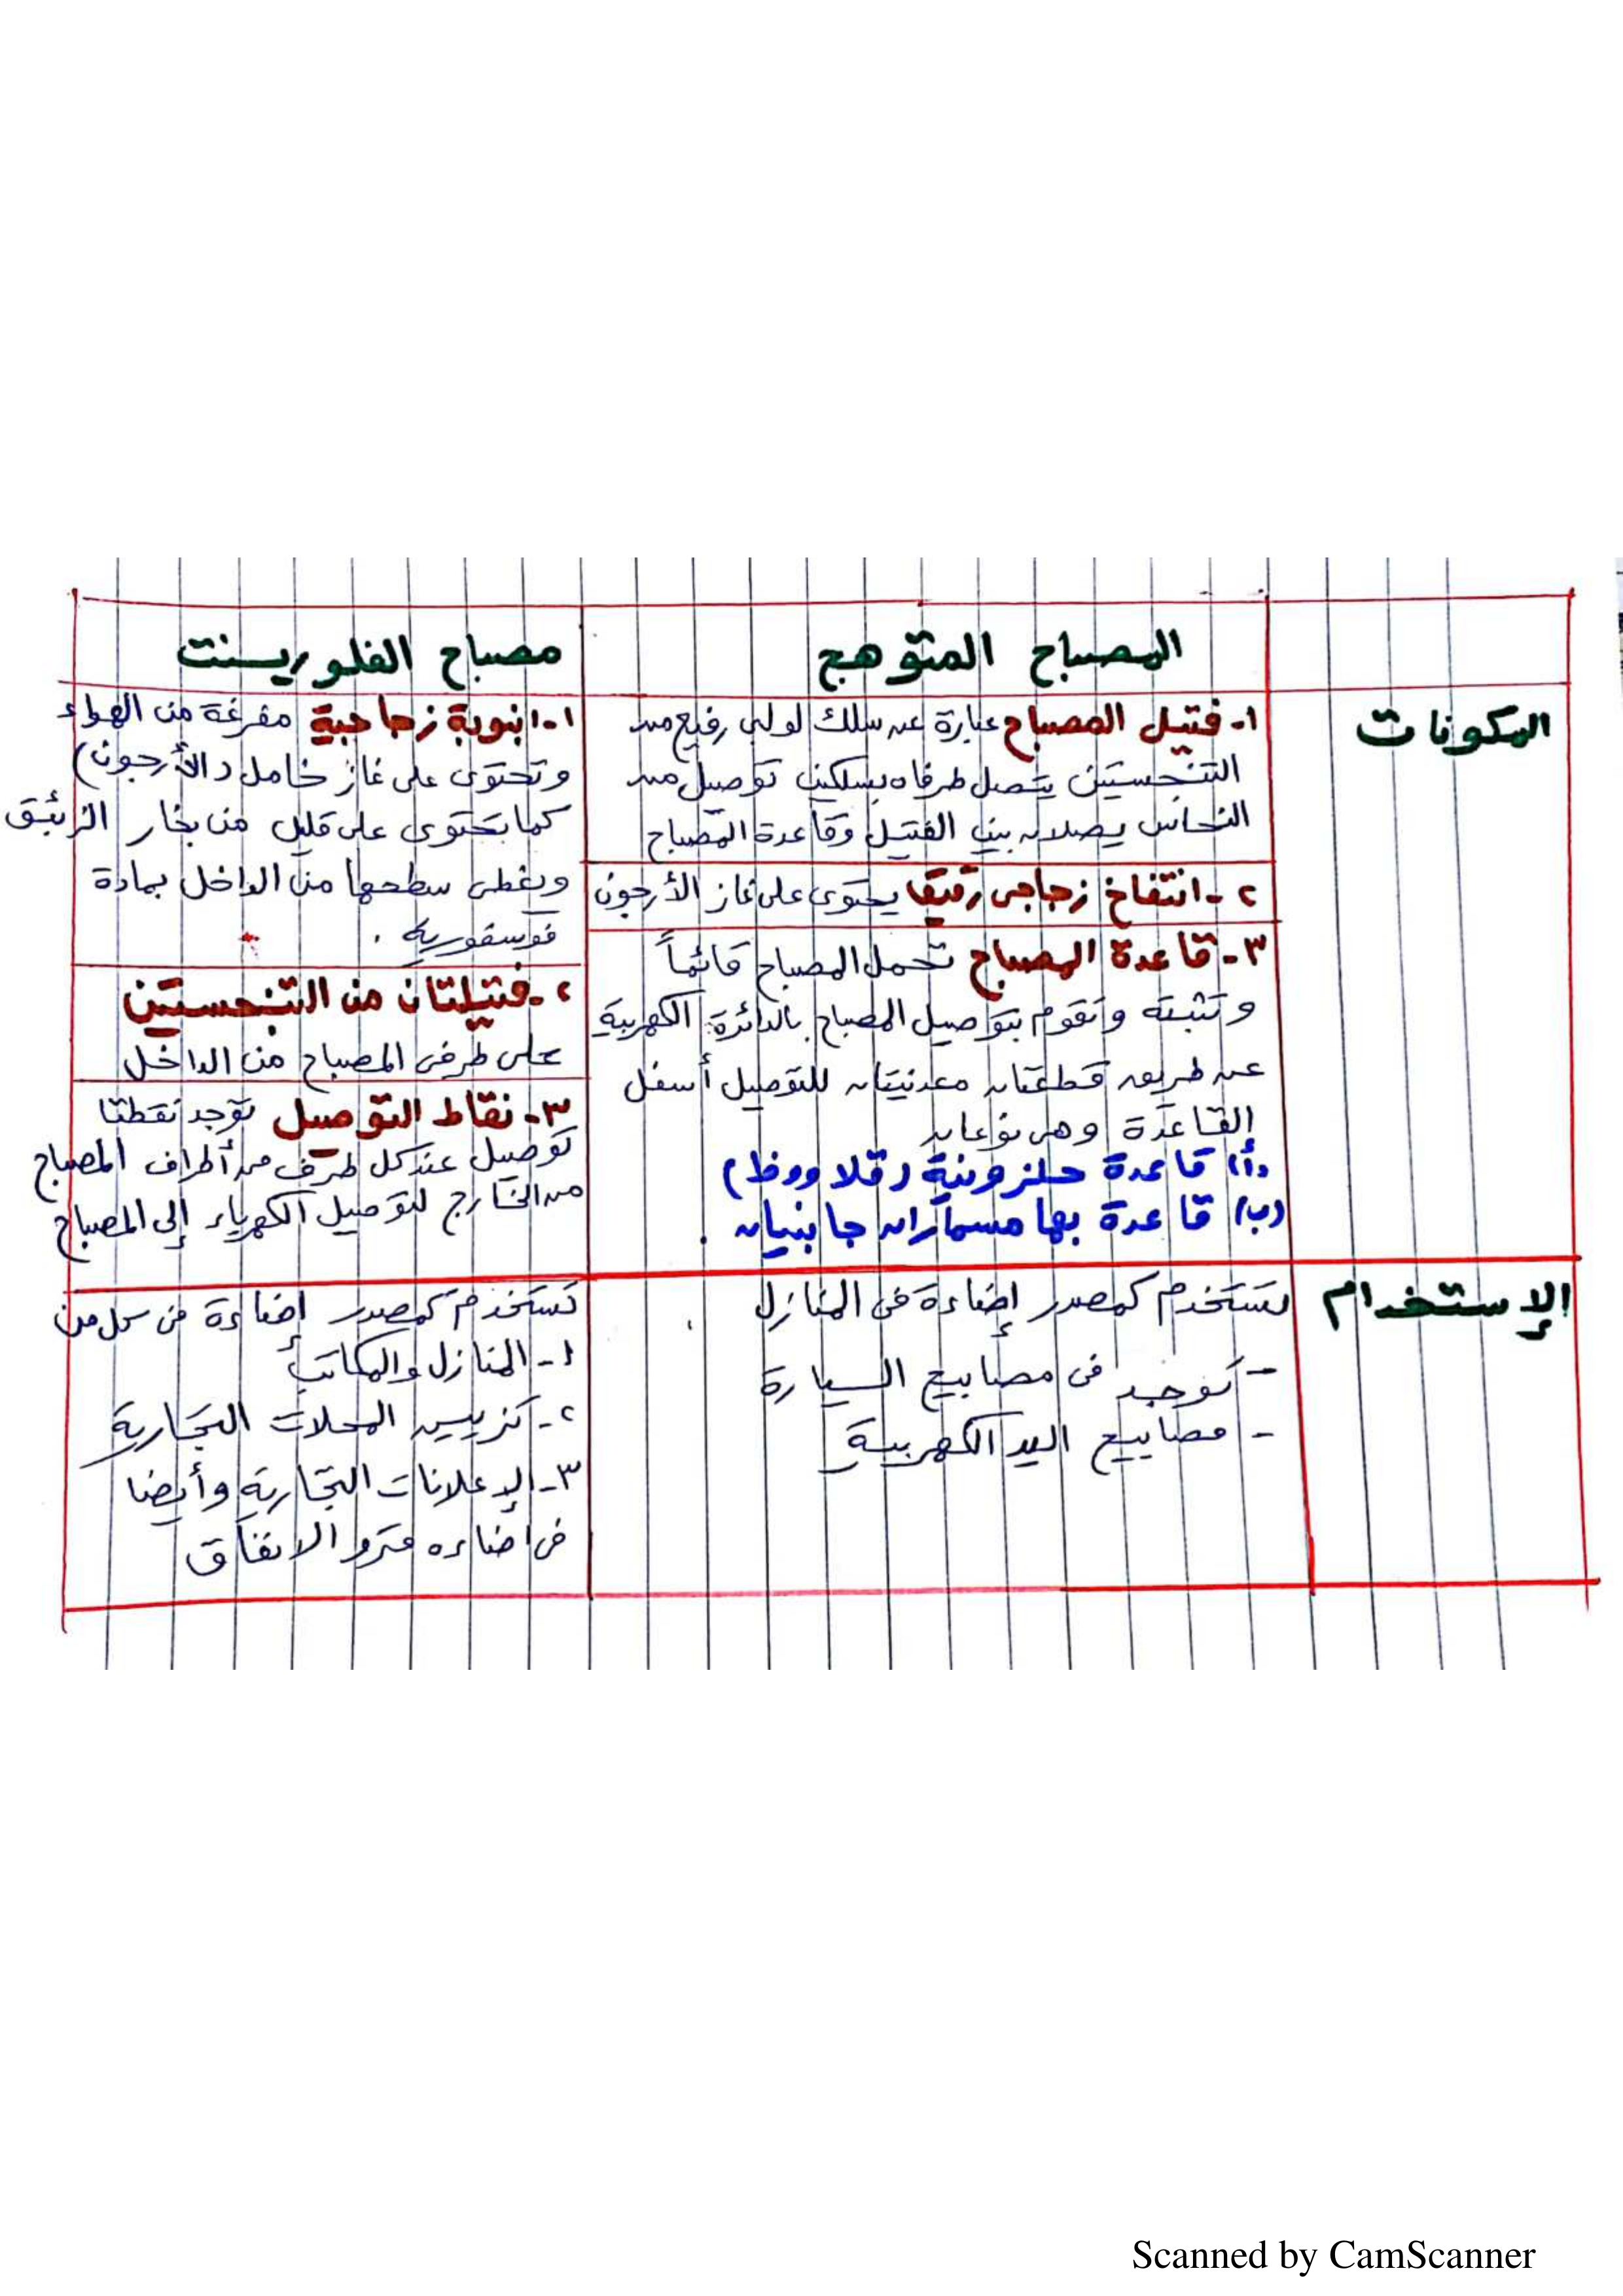 المصباح المتوهج
مصباح الفلوريسنت
المكونات
١- فتيل المصباح عبارة عن سلك لولبى رفيع من
التنجستين يتصل طرفاه بسلكين توصيل من
النحاس يصلان بين الفتيل وقاعدة المصباح
٢- انتفاخ زجاجى رقيق يحتوى على غاز الأرجون
٣- قاعدة المصباح تحمل المصباح قائماً
وتثبته وتقوم بتوصيل المصباح بالدائرة الكهربية
عن طريق قطعتان معدنيتان للتوصيل أسفل
القاعدة وهى نوعان
(أ) قاعدة حلزونية (قلاووظ)
(ب) قاعدة بها مسماران جانبيان .
١- انبوبة زجاجية مفرغة من الهواء
وتحتوى على غاز خامل (الأرجون)
كما يحتوى على قليل من بخار الزئبق
ويغطى سطحها من الداخل بمادة
فوسفورية .
٢- فتيلتان من التنجستين
على طرفى المصباح من الداخل
٣- نقاط التوصيل توجد نقطتا
توصيل عند كل طرف من أطراف المصباح
من الخارج لتوصيل الكهرباء إلى المصباح
الإستخدام
يستخدم كمصدر إضاءة فى المنازل
- توجد فى مصابيح السيارة
- مصابيح اليد الكهربية
تستخدم كمصدر إضاءة فى كل من
١- المنازل والمكاتب
٢- تزيين المحلات التجارية
٣- الإعلانات التجارية وأيضا
فى اضاءه مترو الانفاق
Scanned by CamScanner